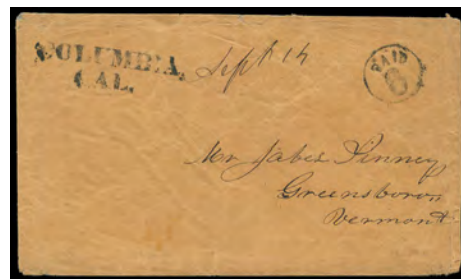 COLUMBIA,
CAL.
Sept 14
PAID
6
Mr Jabez Pinney
Greensboro,
Vermont